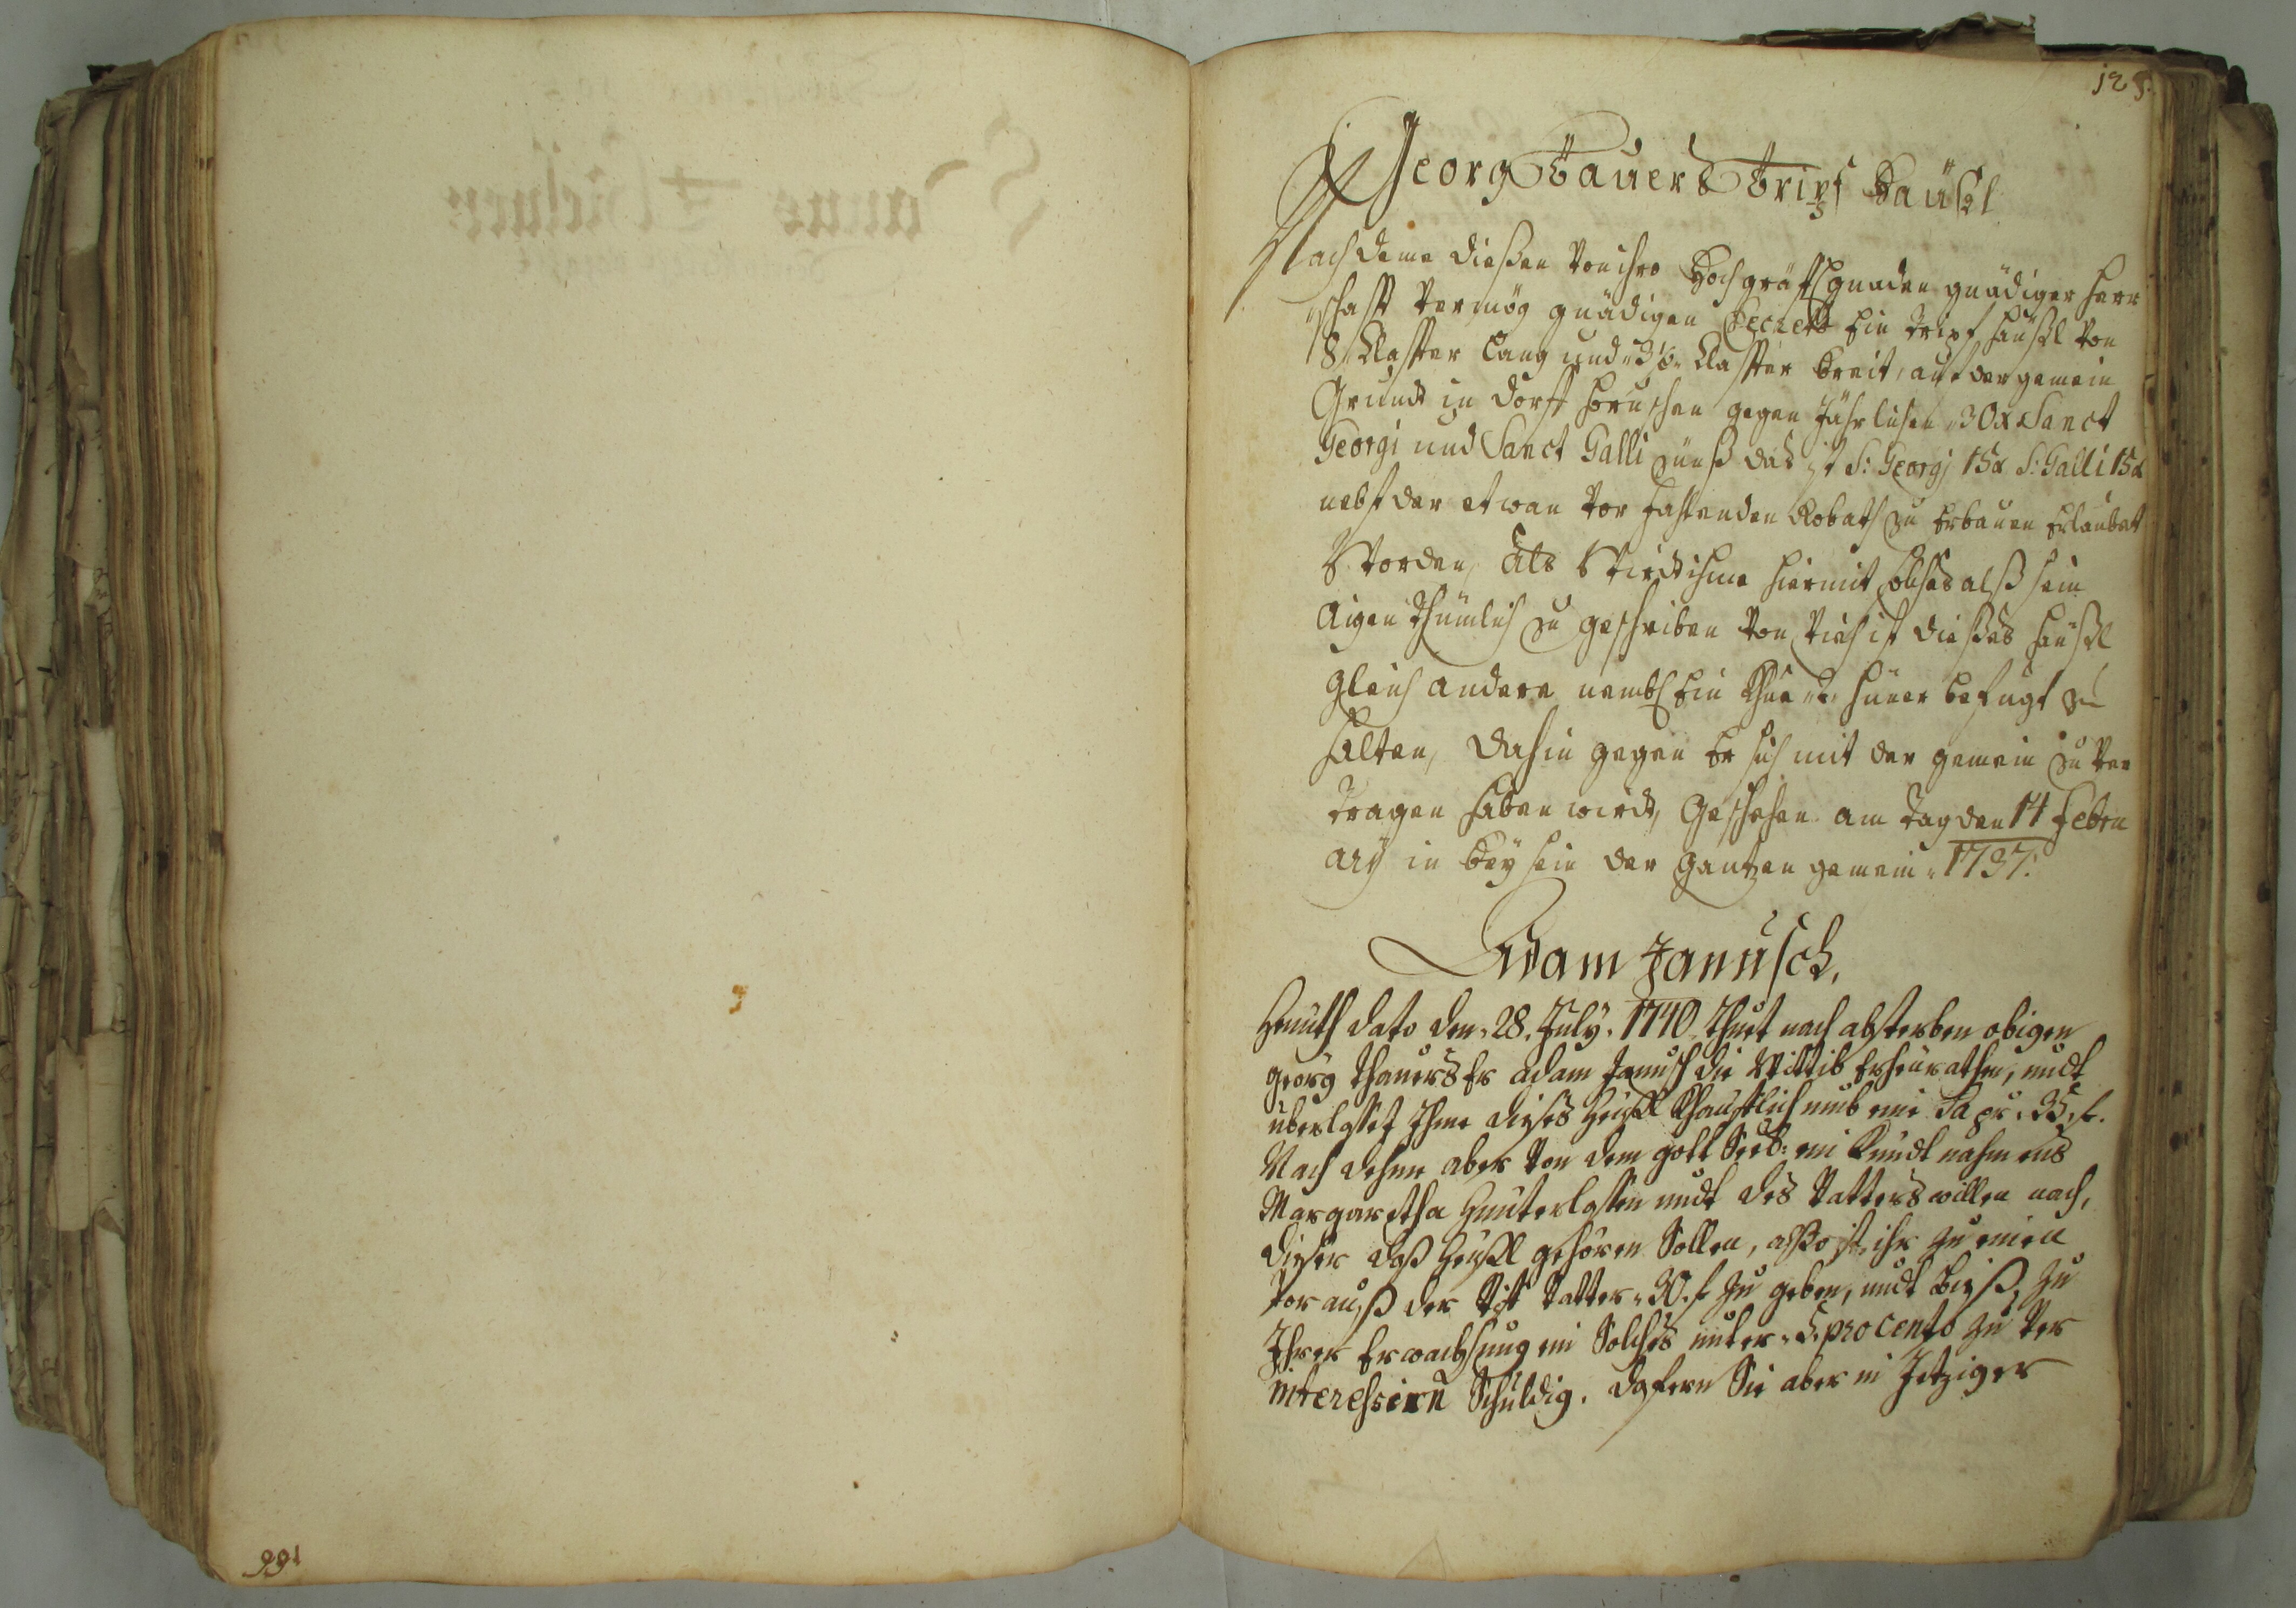 128.
Georg Tauers Tripf Häußl
Nach deme dießen von ihro Hochgräffl gnaden gnädiger herr
schafft vermög gnädigen Decrets Ein Tripf häußl von
8 Klaffter Lang und 3½ Klaffter breit, auf der gemein
Grundt in dorff gegen Jährlichen 30 x Sanct
Georgi und Sanct Galli zünß das ist S: Georgj 15x S: Galli 15x
nebst der etwan vor fallenden Robath zu Erbauen Erlaubet
Worden, Als Wirdt ihme hiermit solches alß sein
Aigenthümlich zu geschriben von Viech ist dießes häußl
gleich andere nembl Ein Khue hüner befugt zu
halten, dahin gegen Er sich mit der gemein zu ver
tragen haben wirdt, Geschehen am Tag den 14 Febru
ary in beysein der gantzen gemein 1737.
Adam Janusch,
Heuth dato den 28. July. 1740 thuet nach absterben obigen
georg thauers Er Adam Janusch die Wittib Erheurathen, undt
überlasset Ihme dieses Heußl Khaufflich umb eine Sa pr. 35 f.
Nach dehme aber von dem gott Seel: ein Kindt nahmens
Margaretha hinterlassen undt des Vatters willen nach,
dieser daß Heußl gehören Sollen, alßo ist ihr zu einen
vorauß der Stif Vatter 30. f zu geben, undt bieß zu
Ihrer Erwachsung ein Solches unter 5. pro cento zu ver
interessirn Schuldig. dafern Sie aber in Jetziger
166